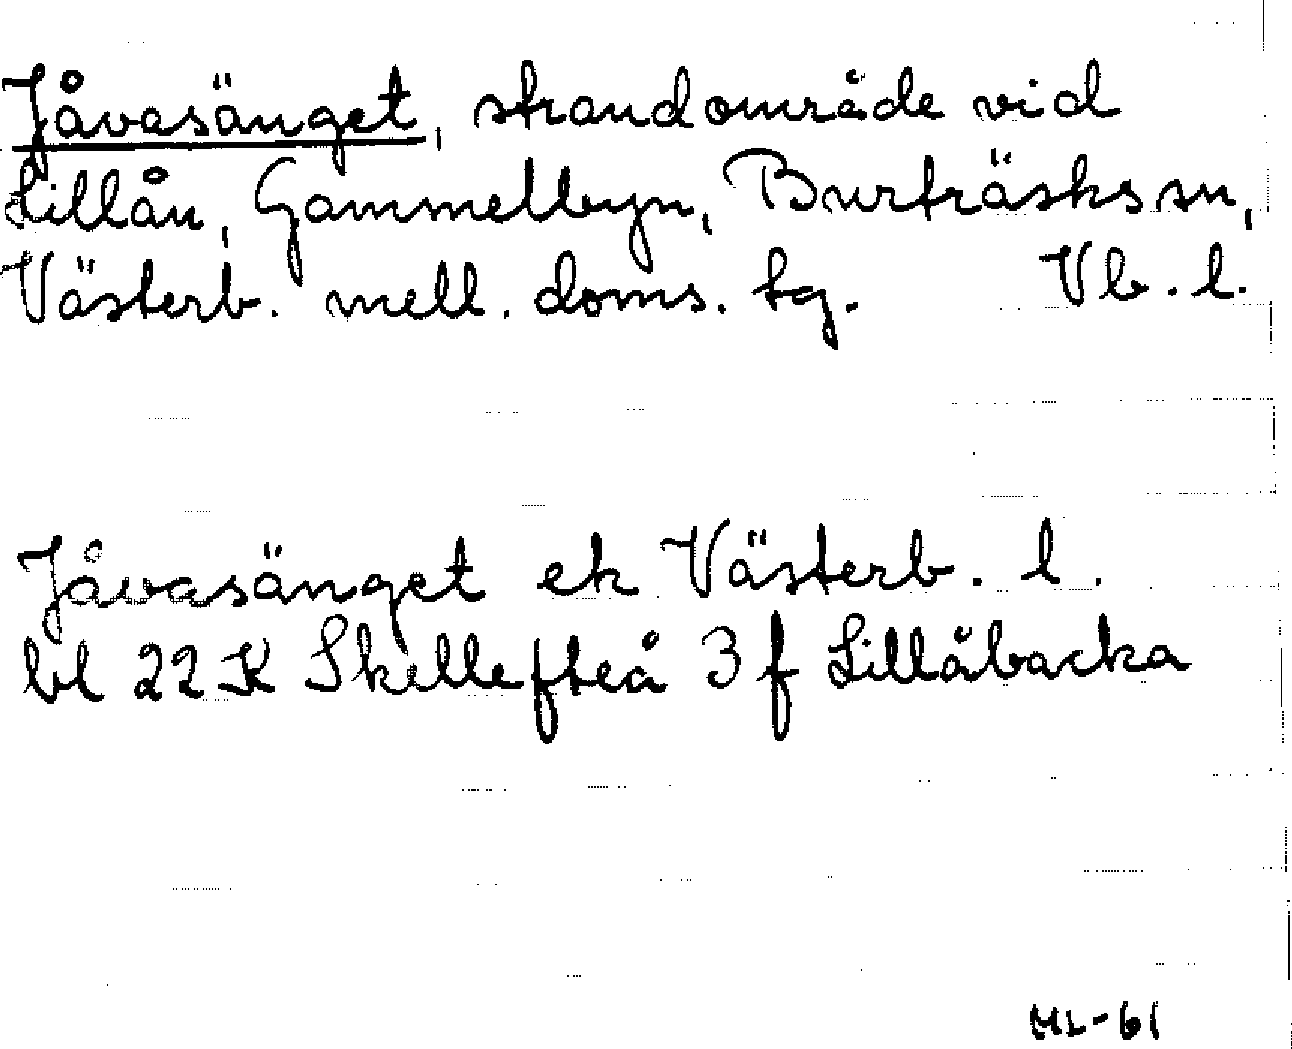 Jåvasänget, strandområde vid
Lillån, Gammelbyn, Burträsks sn,
Västerb. mell. doms. tg. Vb. l.
Jåvasänget ek Västerb. l.
bl 22 K Skellefteå 3 f Lillåbacka
ML-61